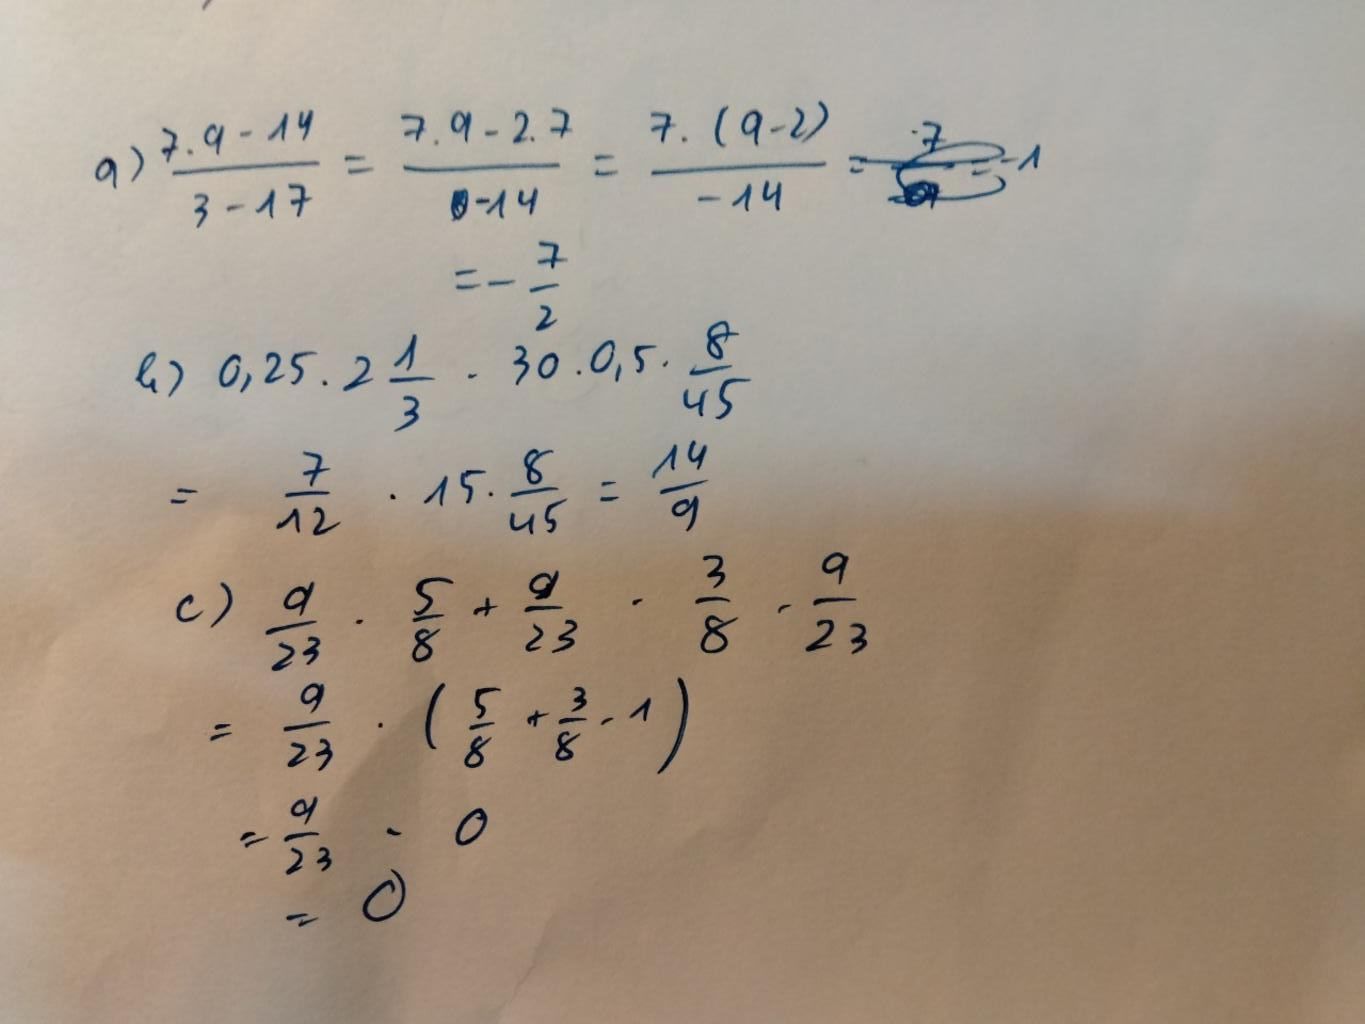 a) (7.9 - 14)/(3 - 17) = (7.9 - 2.7)/(-14) = (7.(9-2))/(-14) = -1
= - 7/2
b) 0,25 . 2 1/3 . 30 . 0,5 . 8/45
= 7/12 . 15 . 8/45 = 14/9
c) 9/23 . 5/8 + 9/23 . 3/8 - 9/23
= 9/23 . (5/8 + 3/8 - 1)
= 9/23 . 0
= 0